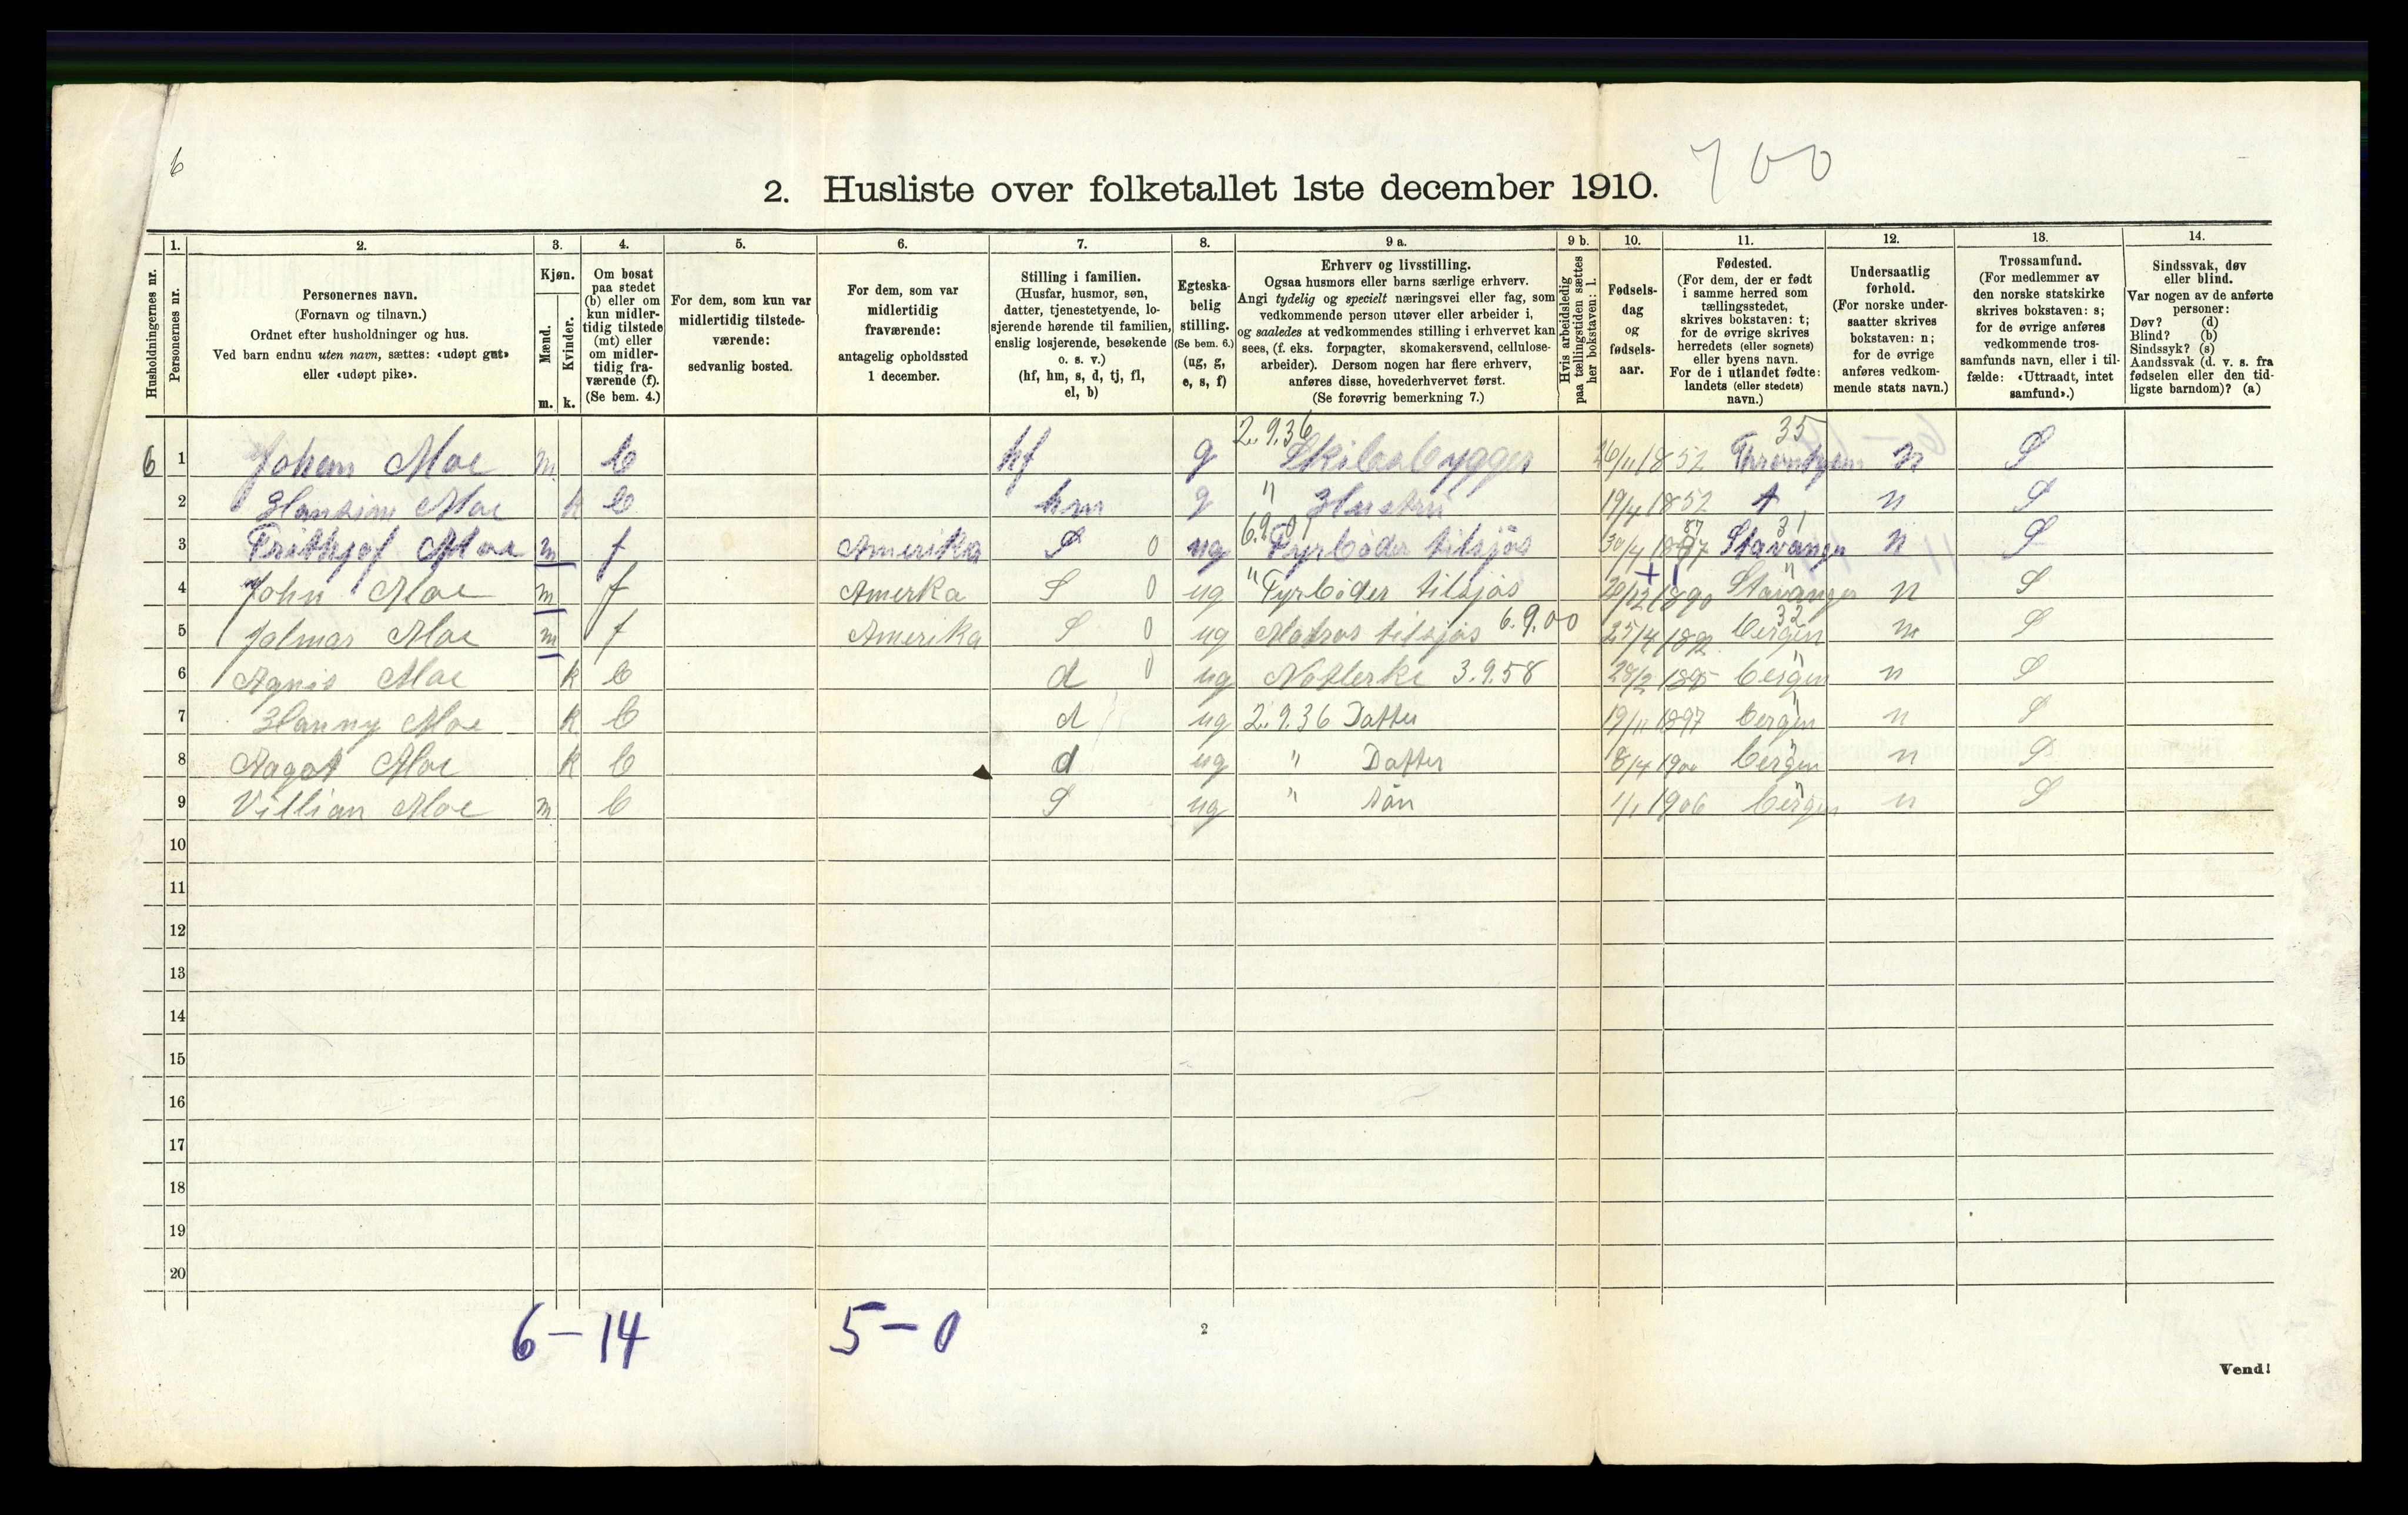 6
2. Husliste over folketallet 1ste december 1910. 700
Husholdningernes nr.
1. Personernes nr.
2. Personernes navn.
(Fornavn og tilnavn.)
Ordnet efter husholdninger og hus.
Ved barn endnu uten navn, sættes: «udøpt gut»
eller «udøpt pike».
3. Kjøn.
Mænd. m.
Kvinder. k.
4. Om bosat
paa stedet
(b) eller om
kun midler-
tidig tilstede
(mt) eller
om midler-
tidig fra-
værende (f).
(Se bem. 4.)
5. For dem, som kun var
midlertidig tilstede-
værende:
sedvanlig bosted.
6. For dem, som var
midlertidig
fraværende:
antagelig opholdssted
1 december.
7. Stilling i familien.
(Husfar, husmor, søn,
datter, tjenestetyende, lo-
sjerende hørende til familien,
enslig losjerende, besøkende
o. s. v.)
(hf, hm, s, d, tj, fl,
el, b)
8. Egteska-
belig
stilling.
(Se bem. 6.)
(ug, g,
e, s, f)
9 a. Erhverv og livsstilling.
Ogsaa husmors eller barns særlige erhverv.
Angi tydelig og specielt næringsvei eller fag, som
vedkommende person utøver eller arbeider i,
og saaledes at vedkommendes stilling i erhvervet kan
sees, (f. eks. forpagter, skomakersvend, cellulose-
arbeider). Dersom nogen har flere erhverv,
anføres disse, hovederhvervet først.
(Se forøvrig bemerkning 7.)
9 b. Hvis arbeidsledig
paa tællingstiden sættes
her bokstaven: l.
10. Fødsels-
dag
og
fødsels-
aar.
11. Fødested.
(For dem, der er født
i samme herred som
tællingsstedet,
skrives bokstaven: t;
for de øvrige skrives
herredets (eller sognets)
eller byens navn.
For de i utlandet fødte:
landets (eller stedets)
navn.)
12. Undersaatlig
forhold.
(For norske under-
saatter skrives
bokstaven: n;
for de øvrige
anføres vedkom-
mende stats navn.)
13. Trossamfund.
(For medlemmer av
den norske statskirke
skrives bokstaven: s;
for de øvrige anføres
vedkommende tros-
samfunds navn, eller i til-
fælde: «Uttraadt, intet
samfund».)
14. Sindssvak, døv
eller blind.
Var nogen av de anførte
personer:
Døv? (d)
Blind? (b)
Sindssyk? (s)
Aandssvak (d. v. s. fra
fødselen eller den tid-
ligste barndom)? (a)
2.9.36 35
6 1 Johan Moe m b hf g Skibsbygger 26/11 1852 n S
2 Hansine Moe k b hm g " Hustru 19/4 1852 t n S
6.9.01 87 31
3 Frithjof Moe m f Amerika S 0 ug Fyrbøder tilsjøs 30/4 Stavanger n S
4 John Moe m f Amerka S 0 ug " Fyrbøder tilsjøs 20/12 1890 Stavanger " n S
5 Jalmar Moe m f Amerika S 0 ug Matros tilsjøs 6.9.00 25/4 1892 32 bergen n S
6 Agnis Moe k b d 0 ug 3.9.58 28/2 1895 bergen " n S
7 Hanny Moe k b d ug 2.9.36 Datter 19/11 1897 bergen " n S
8 Aagot Moe k b d ug " Datter 8/4 1900 bergen " n S
9 Villian Moe m b S ug " Sön 1/1 1906 bergen " n S
10
11
12
13
14
15
16
17
18
19
20
6–14 5–0
2
Vend!